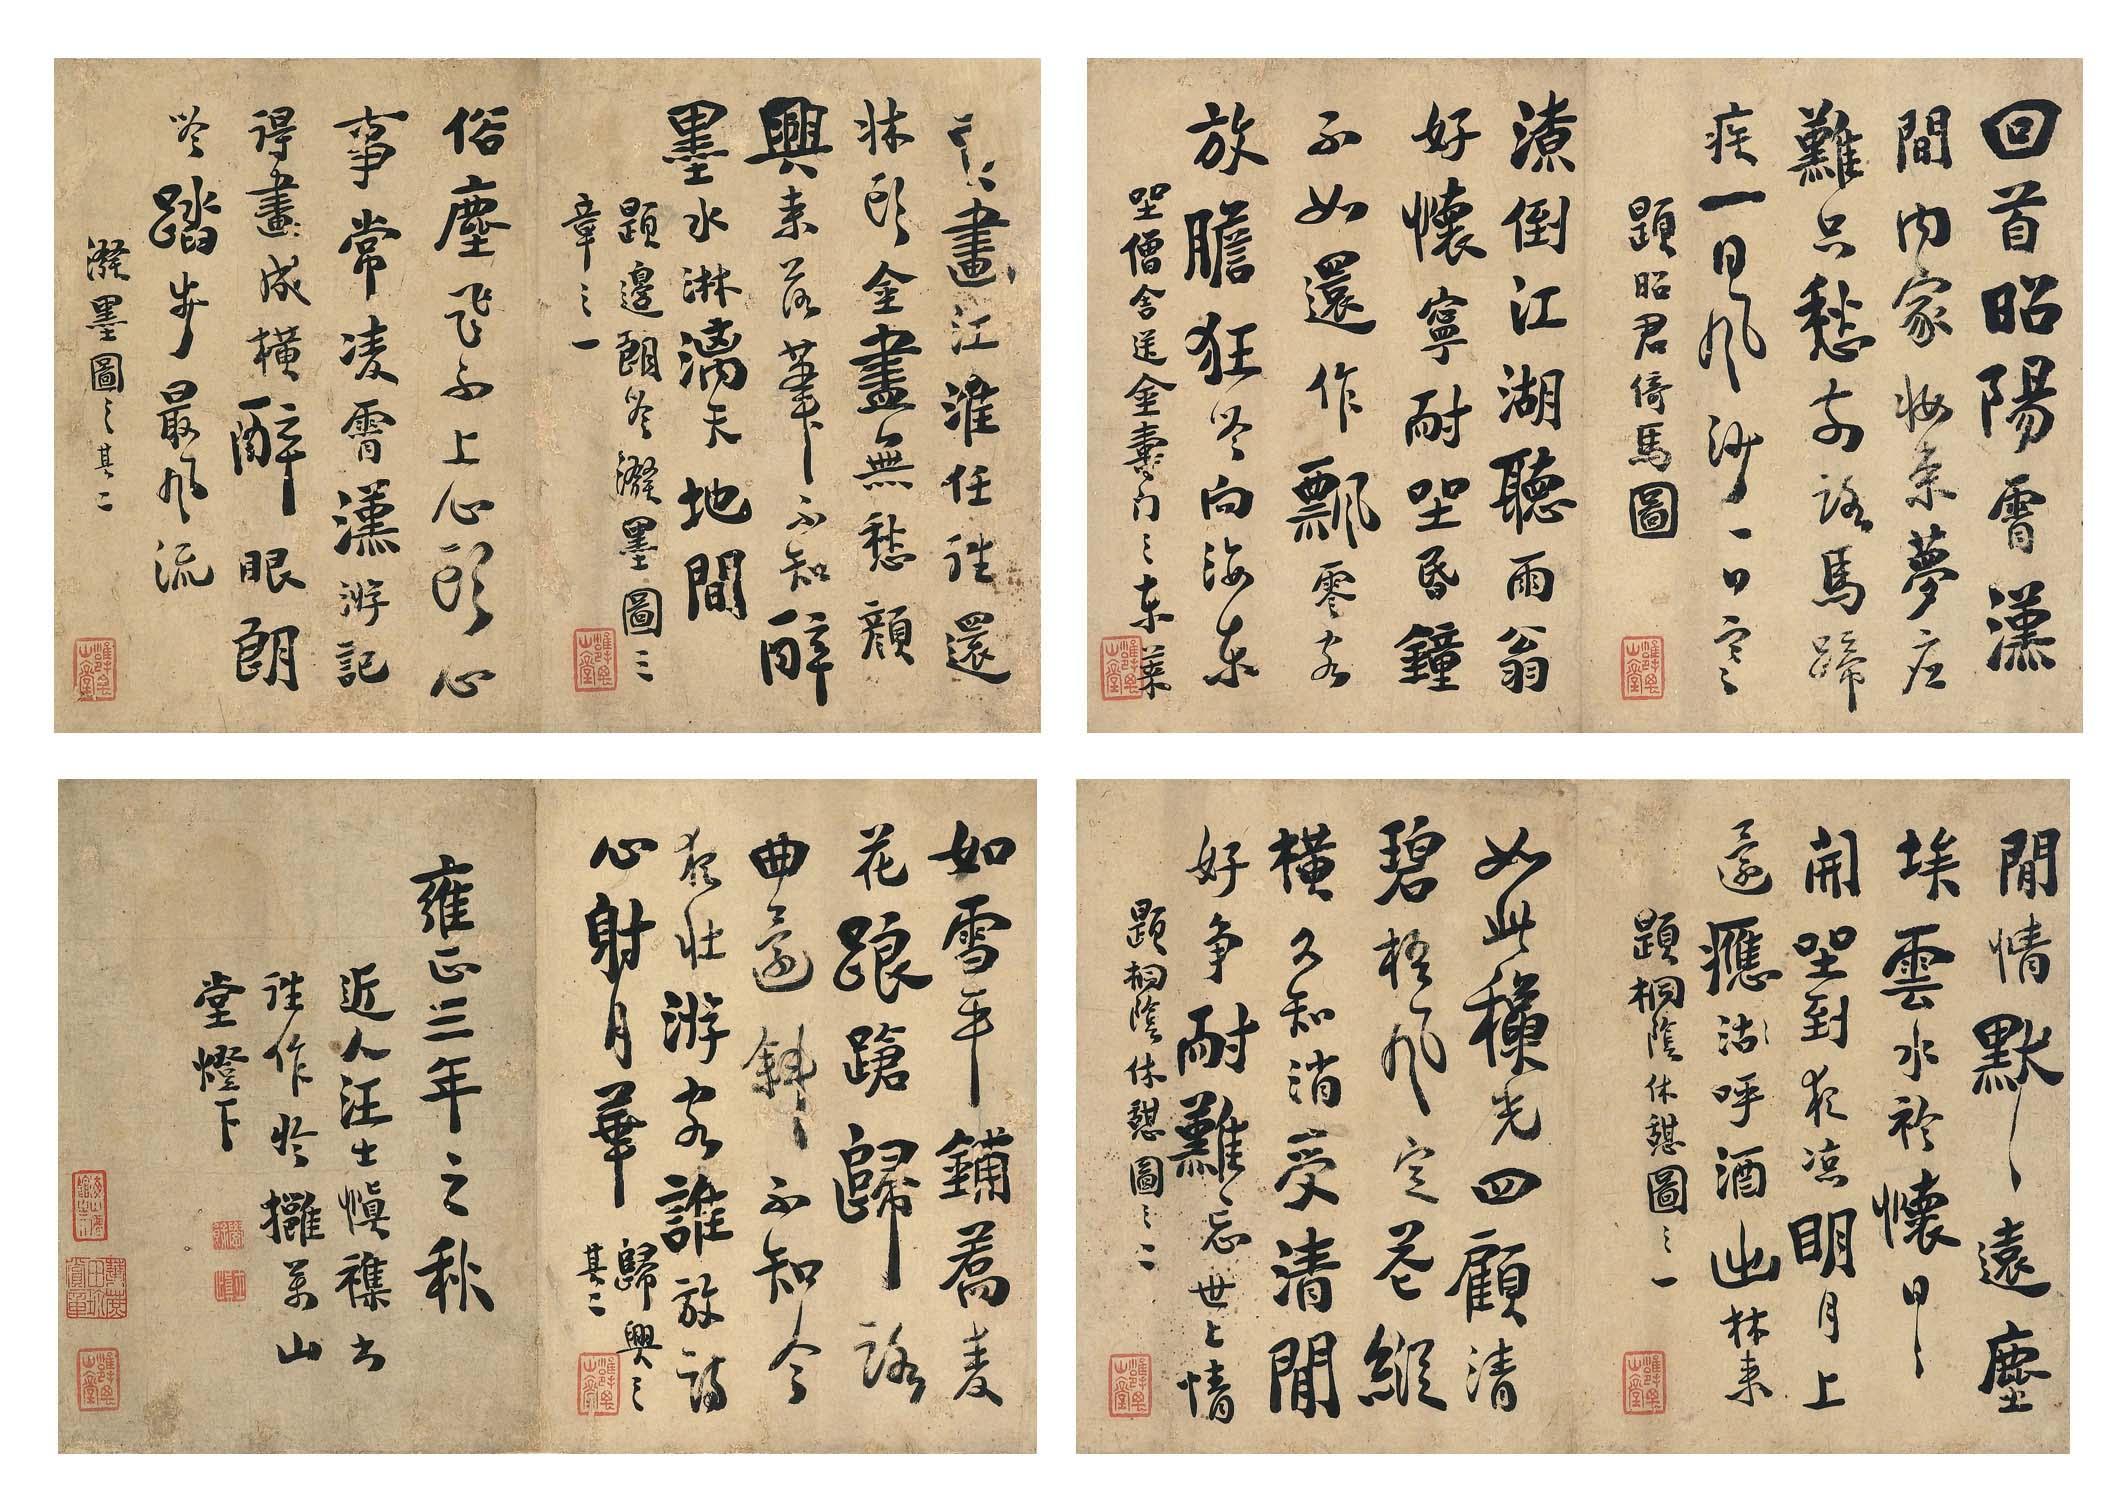 回首昭陽霄漢
間内家妝束夢應
難只愁前路馬蹄
疾一日風沙一日寒
題昭君倚馬圖
潦倒江湖聽雨翁
好懷寧耐坐昏鐘
不如還作飄零客
放膽狂吟向海東
坐僧舍送金壽門之東萊
畫江淮任往還
牀頭金盡無愁顏
興來落筆不知醉
墨水淋漓天地間
題邊朗吟潑墨圖三
章之一
俗塵飛不上心頭心
事常凌霄漢游記
得畫成橫醉眼朗
吟踏步最風流
潑墨圖之其二
閒情默默遠塵
埃雲水衿懷日日
開坐到夜凉明月上
還應沽呼酒出林來
題桐蔭休憩圖之一
如此穠光四顧清
碧梧風定花縱
橫久知消受清閒
好爭耐難忘世上情
題桐蔭休憩圖之二
如雪平鋪蕎麦
花踉蹌歸路
曲還斜不知今
夜壯游客誰放詩
心射月華
歸興之
其二
雍正三年之秋
近人汪士慎襍書
往作於攤萬山
堂燈下